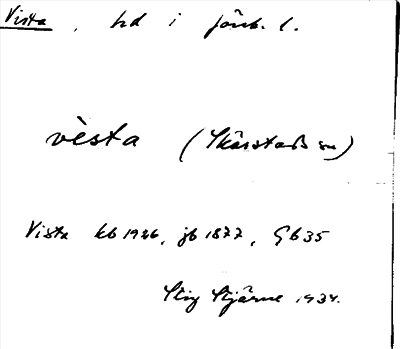 Vista, hd i jönk. l.
vèsta (Skärstads sn)
Vista kb 1926, jb 1877, Gb 35
Stig Stjärne 1934.